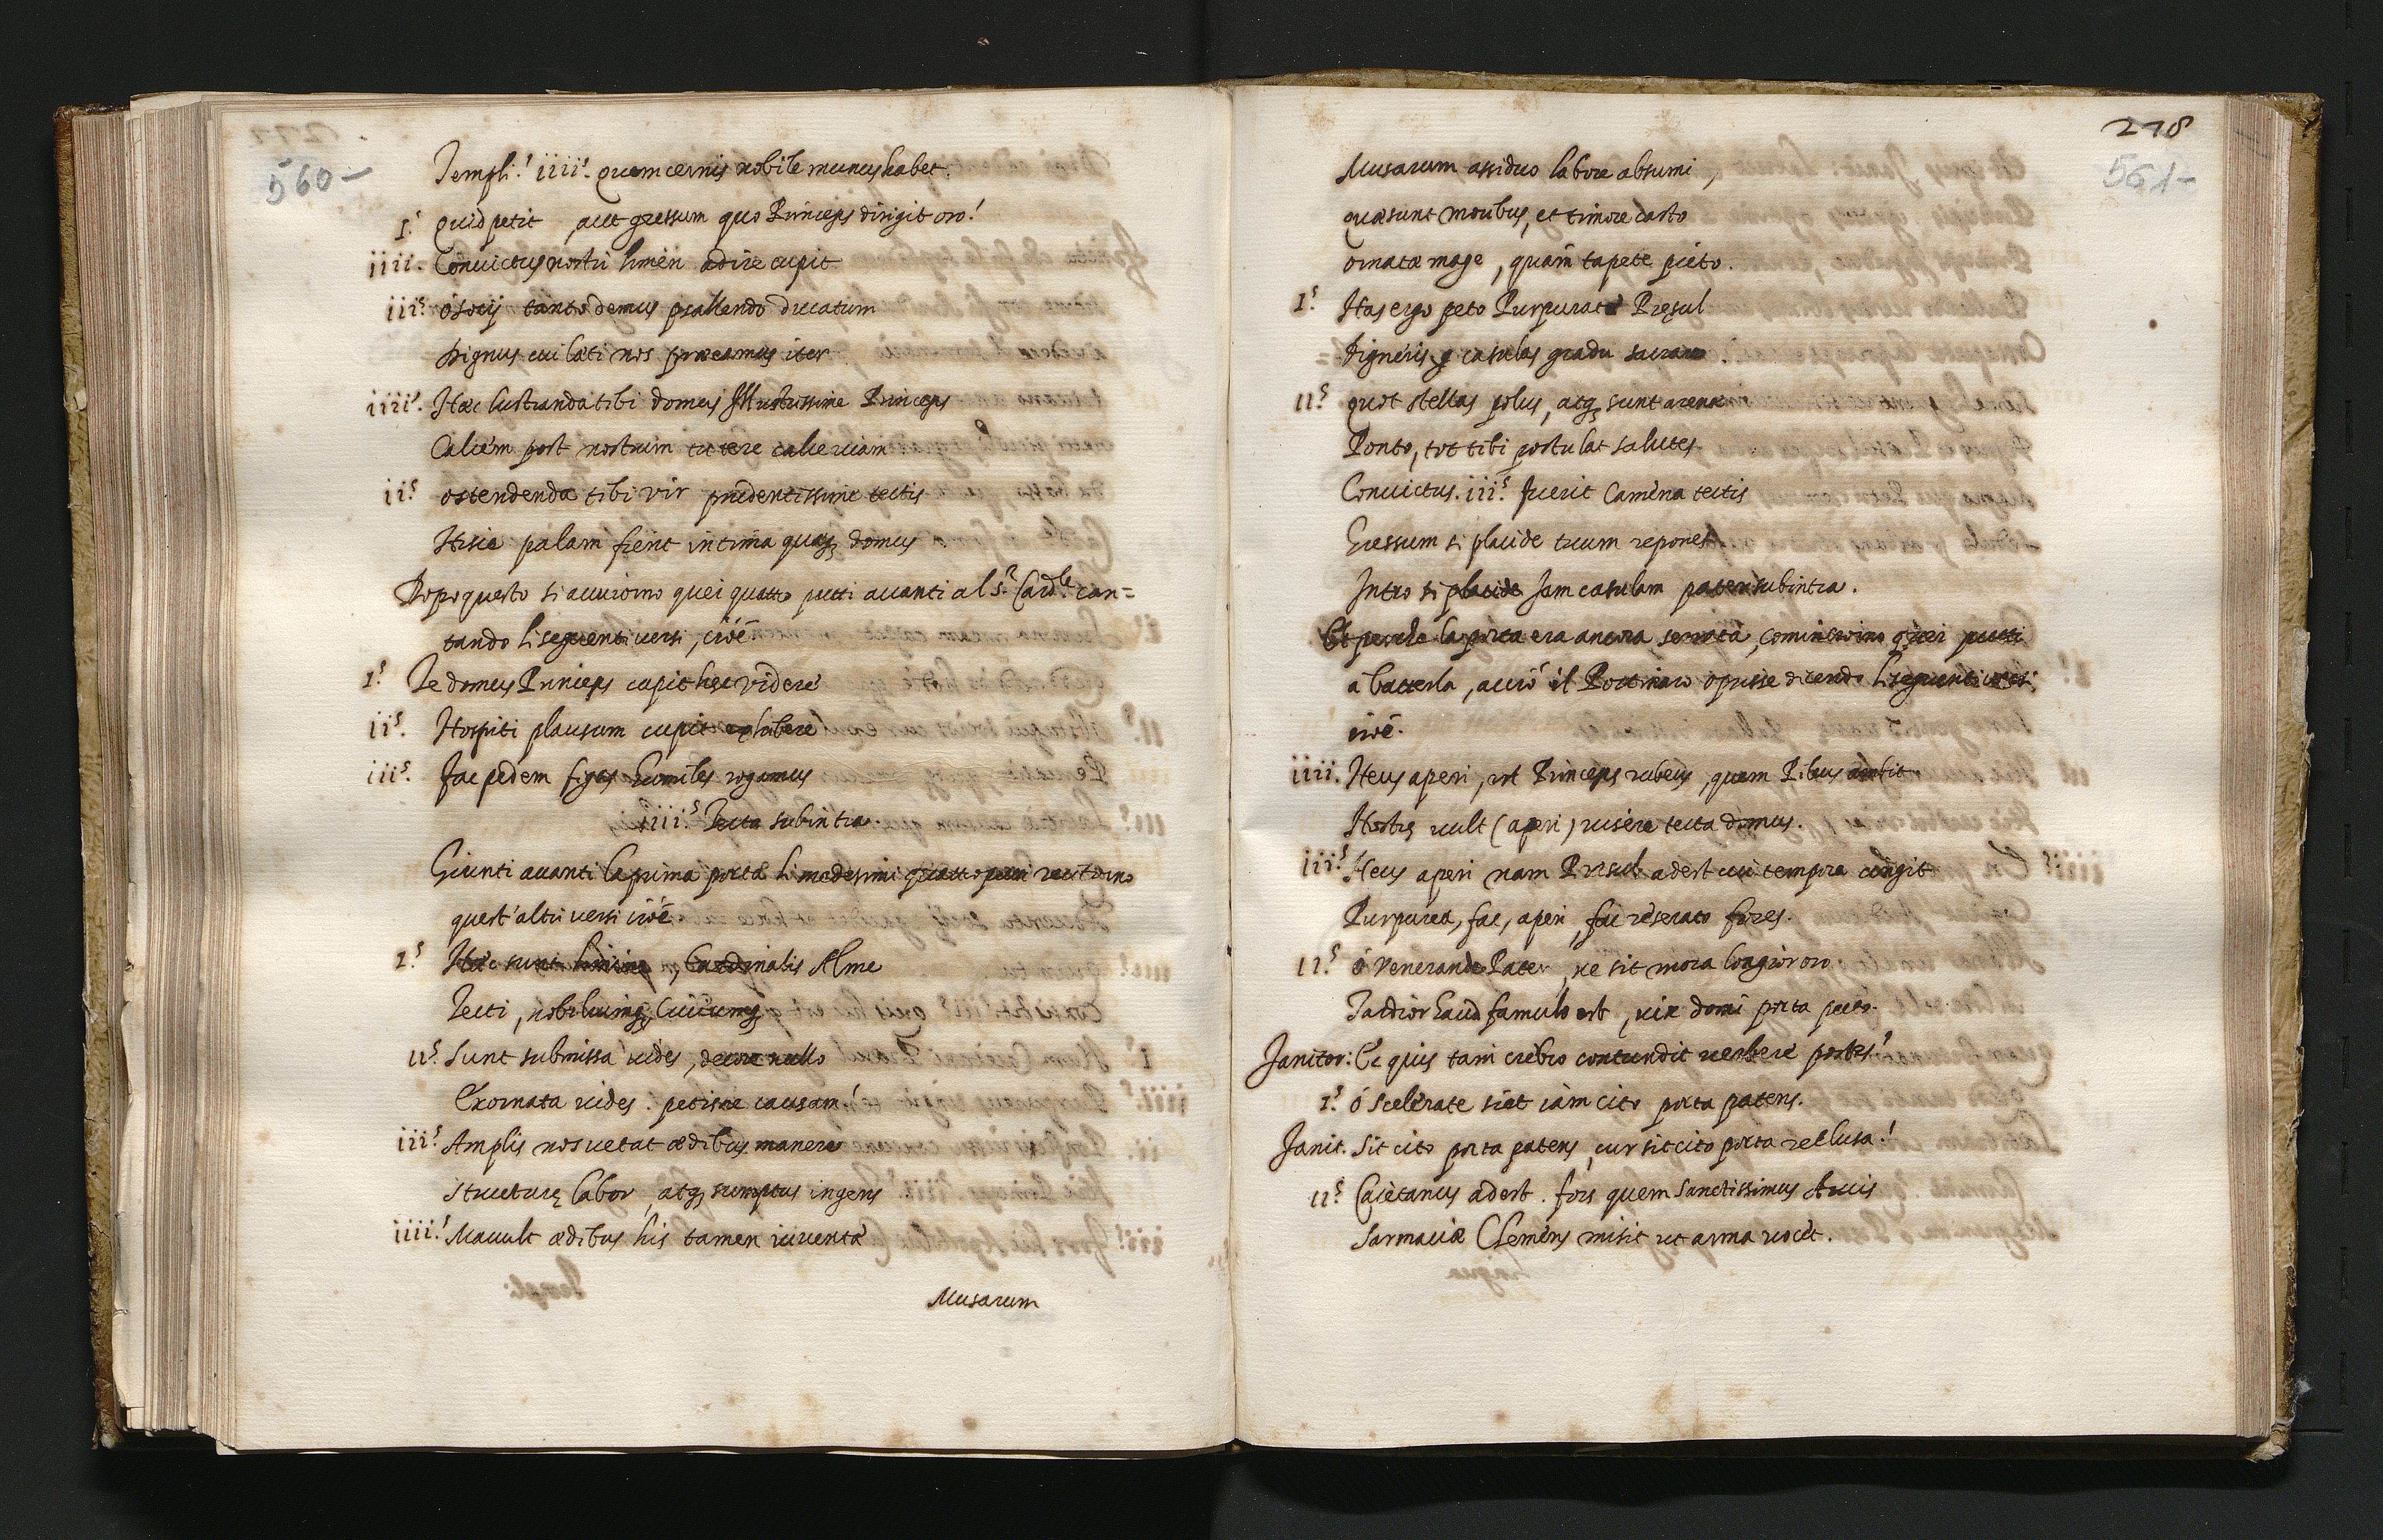 560-
Templi? iiii.s quem cernis nobile munus habet.
I.s quid petit, aut gressum quo Princeps dirigit oro?
iiii. Convictus nostri limen adire cupit
iii.s ò socij tanto demus psallendo ducatum
Dignus cui læti nos præeamus iter
iiii.s Hæc lustranda tibi domus Illustrissime Princeps
Calcem post nostrum tu tere calle viam
ii.s ostendenda tibi vir prudentissime tectis
Hisce palam fient intima quæq; domus
Dopo questo si auuiorno quei quatto putti auanti al S.r Card.le can=
tando li seguenti uersi, cioè
I.s Te domus Princeps cupit hęc videre
ii.s Hospiti plausum cupit exhibere
iii.s fac pedem figas humiles rogamus
iiii.s Tecta subintra.
Giunti auanti la prima porta li medesimi quatto putti recitorno
quest'altri uersi cioè
I.s Hæc sunt limina, Cardinalis Alme
Tecti, nobiliumq; Ciuiumq;
ii.s Sunt submissa uides, decore nullo
Exornata uides. petisne causam?
iii.s Amplis nos uetat ædibus manere
Structurę labor, atq; sumptus ingens
iiii.s Mauult ædibus his tamen iuuenta
Musarum
278
561-
Musarum assiduo labore absumi,
quæ sunt moribus, et timore casto
ornatæ mage, quàm tapete picto.
I.s Has ergo peto Purpurate Pręsul
Digneris casulas gradu sacrare.
ii.s quot stellas polus, atq; sunt arenæ
Ponto, tot tibi postulat salutes
Convictus. iii.s fuerit Camena tectis
Gressum si placide tuum repones
Intro si placide Jam casulam pater subintra.
Et perche la porta era ancora serrata, cominciorno quei putti
a batterla, acciò il Portinaro aprisse dicendo li seguenti uersi;
cioè.
iiii. Heus aperi, est Princeps rubeus, quem Tibus ambit
Hostis uult (aperi) uisere tecta domus.
iii.s Heus aperi nam Præsul adest cui tempora cingit
Purpurea, fac, aperi, fac reserato fores.
ii.s ò Venerande Pater, ne sit mora longior oro
Tardior haud famulo est, uix domi porta peto.
Janitor: Ec quis tam crebro contundit uerbere postes?
I.s ò scelerate siet iàm cito porta patens.
Janit. Sit cito porta patens, cur sit cito porta reclusa?
ii.s Caietanus adest. fors quem Sanctissimus Arcis
Sarmaciæ Clemens misit ut arma uocet.